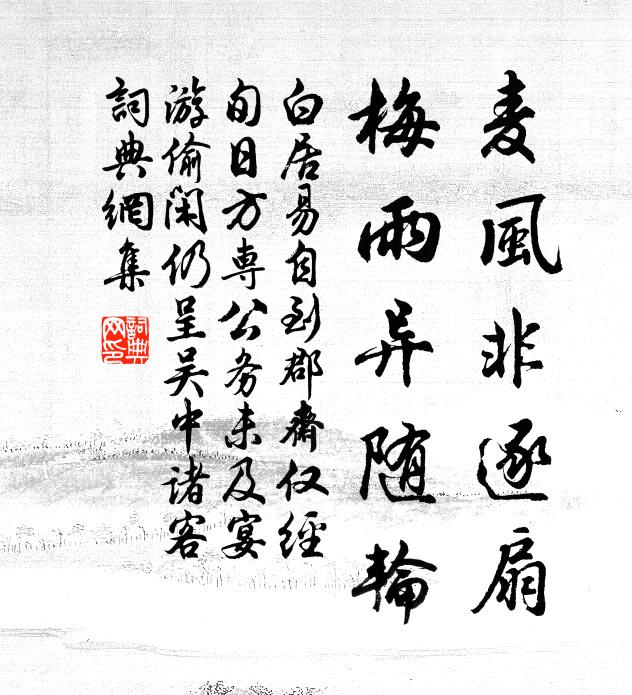 麦風非逐扇
梅雨异随輪
白居易自到郡齋仅經
旬日方専公务未及宴
游偷閑仍呈吴中诸客
詞典網集
詞典
网印